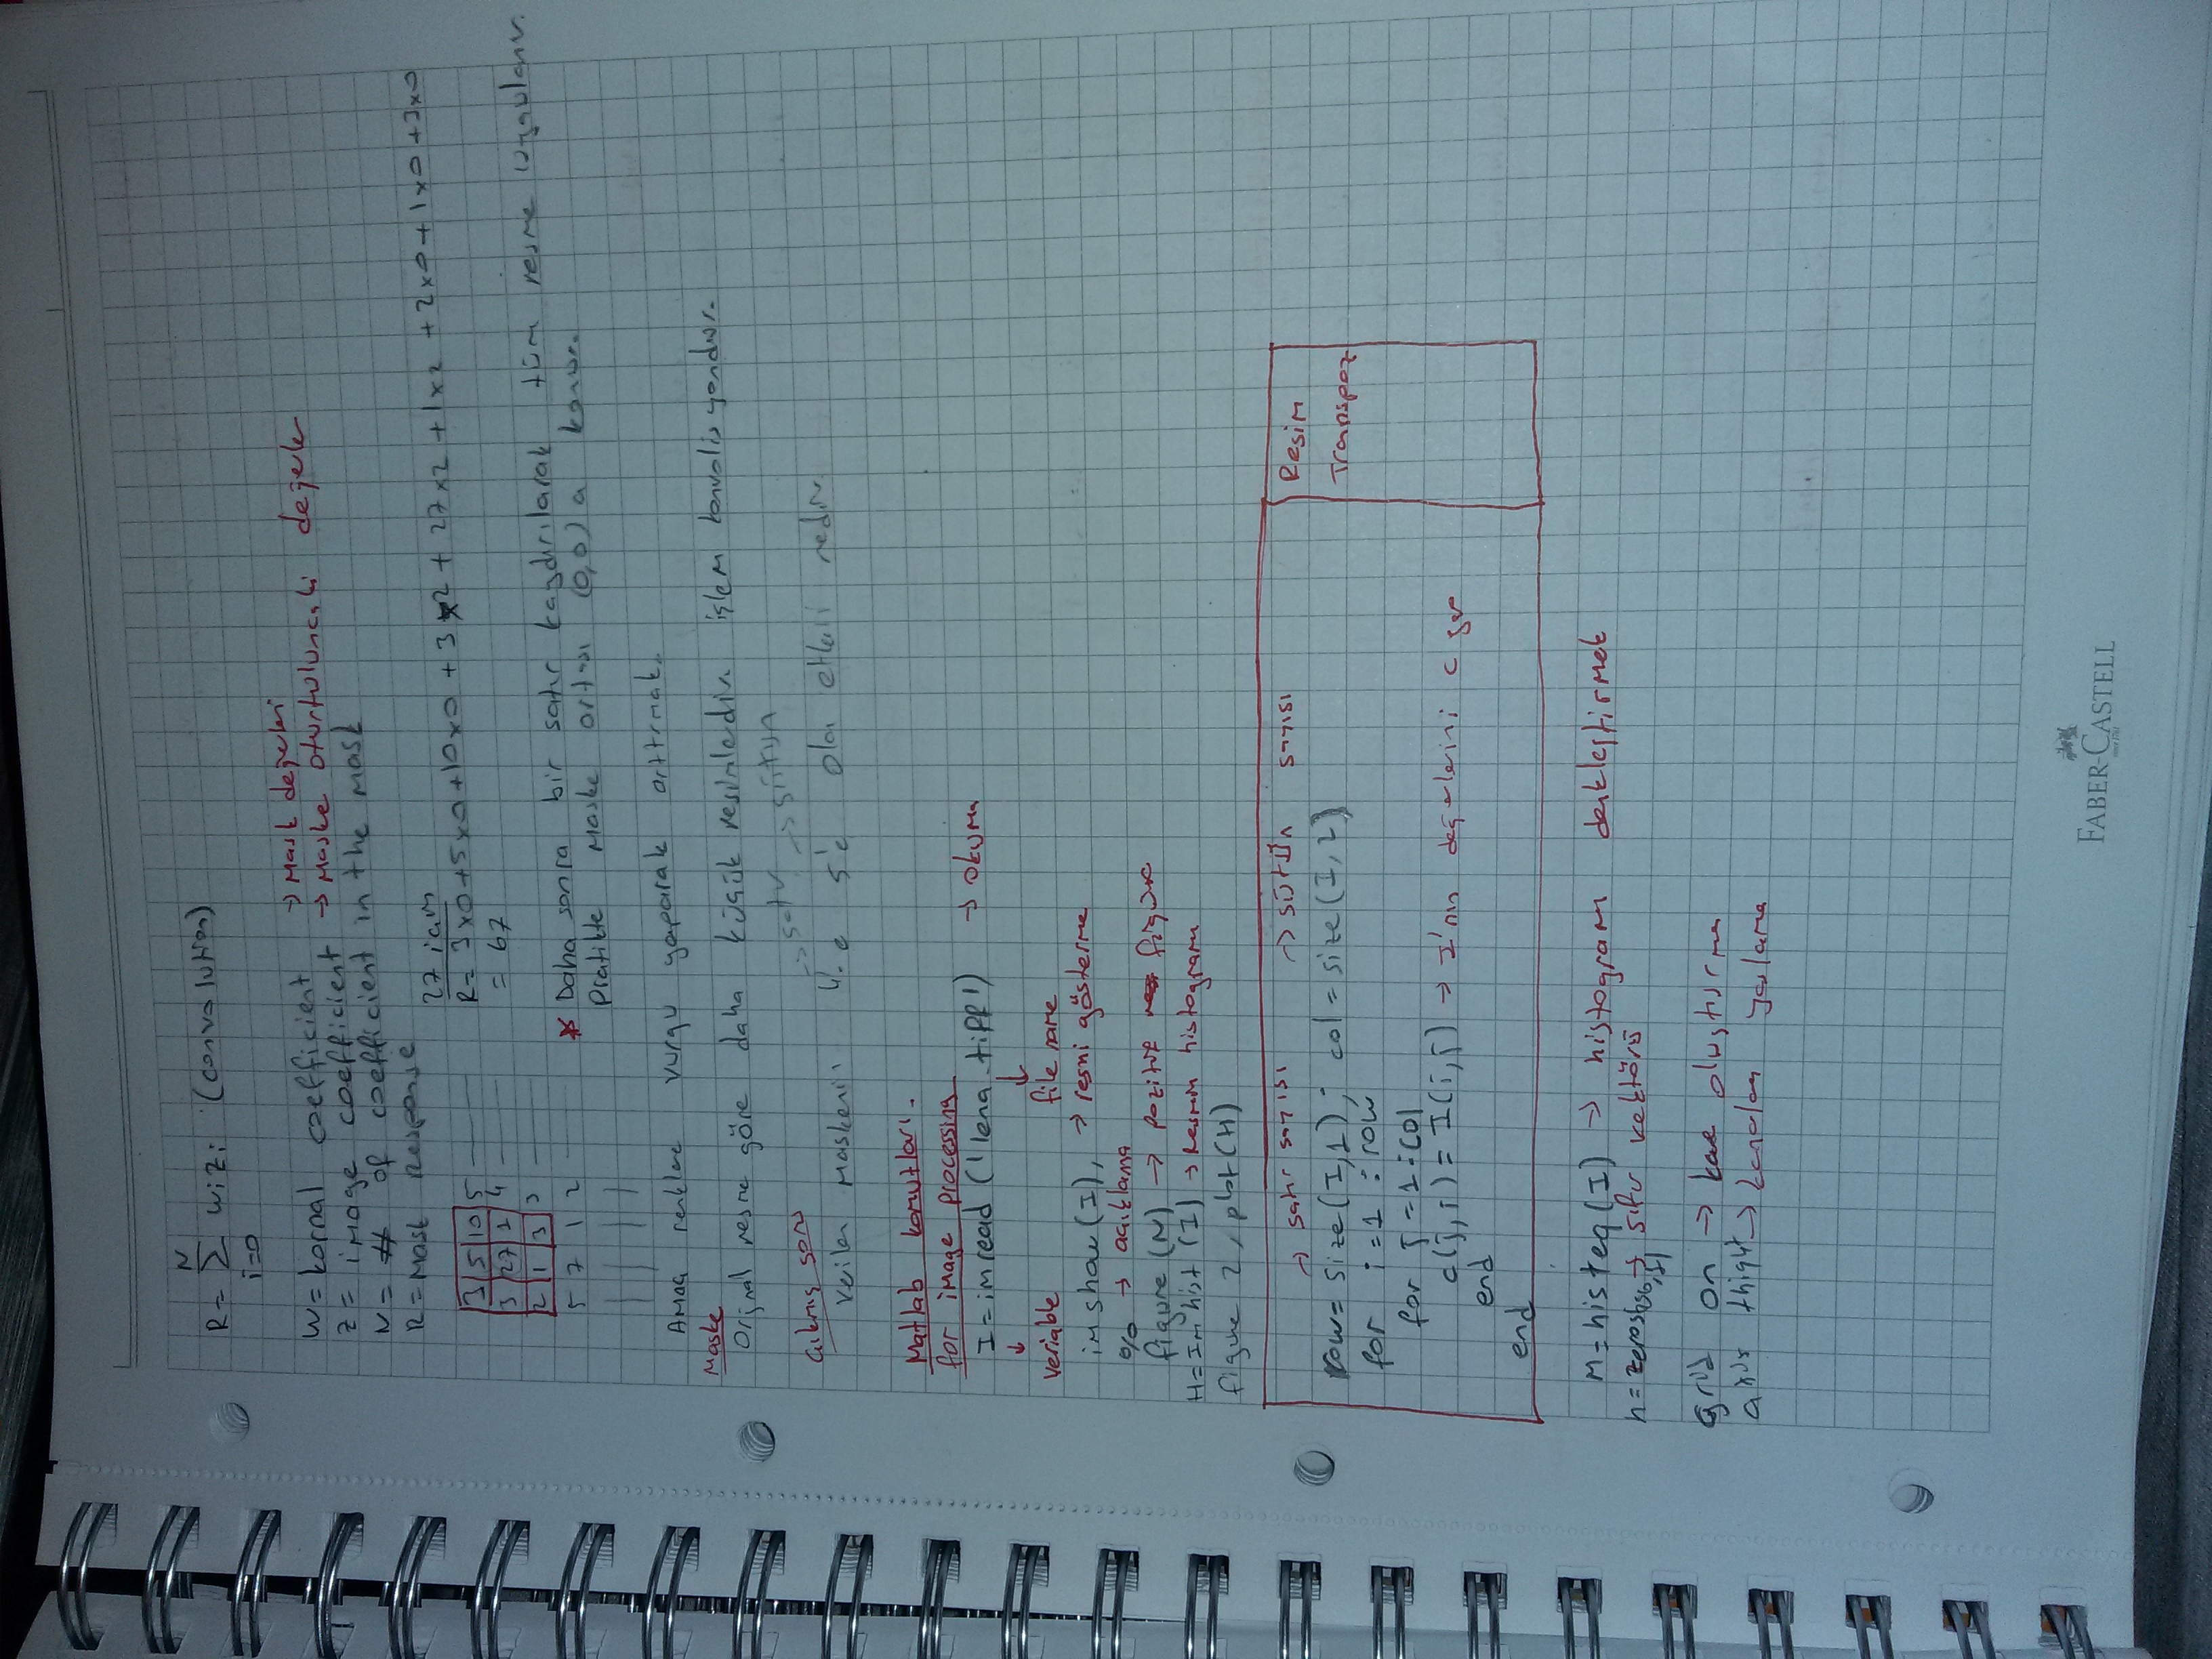 N
R = Σ wizi (convolution)
i=0
w = kornal coefficient → Mask değerleri
z = image coefficient → Maske oturtuluncaki değerler
N = # of coefficient in the mask
R = Mask Response
27 için
R = 3x0+5x0+10x0 + 3x2 + 27x2 + 1x2 + 2x0+1x0+3x0
= 67
3 5 10 5
3 27 1 4
2 1 3 3
5 7 1 2
* Daha sonra bir satır kaydırılarak tüm resme uygulanır.
Pratikte Maske ortası (0,0) a konur.
Amaç renklere vurgu yaparak arttırmak.
Maske
Orjinal resme göre daha küçük resimlerdir. işlem konvolisyondur.
Çıkmış soru
→ satır → sütun
Verilen Maskenin 4'e 5'e olan etkisi nedir
Matlab komutları.
for image processing
I = imread ('lena.tiff') → okuma
↓ ↓
veriable file name
imshow(I), → resmi gösterme
% → açıklama
figure (N) → pozitif figure
H = Imhist (I) → Resmin histogramı
figure 2, plot(H)
→ satır sayısı → sütün sayısı
row = size(I,1); col = size(I,2)
Resim
Transpoz
for i = 1 : row
for j = 1 : col
c(j,i) = I(i,j) → I'nın değerlerini c
end
end
M = histeq(I) → histogram denkleştirmek
h = zeros(256,1) → sıfır vektörü
grid on → kare oluşturma
axis thight → kenarları yaslama
FABER-CASTELL
since 1761